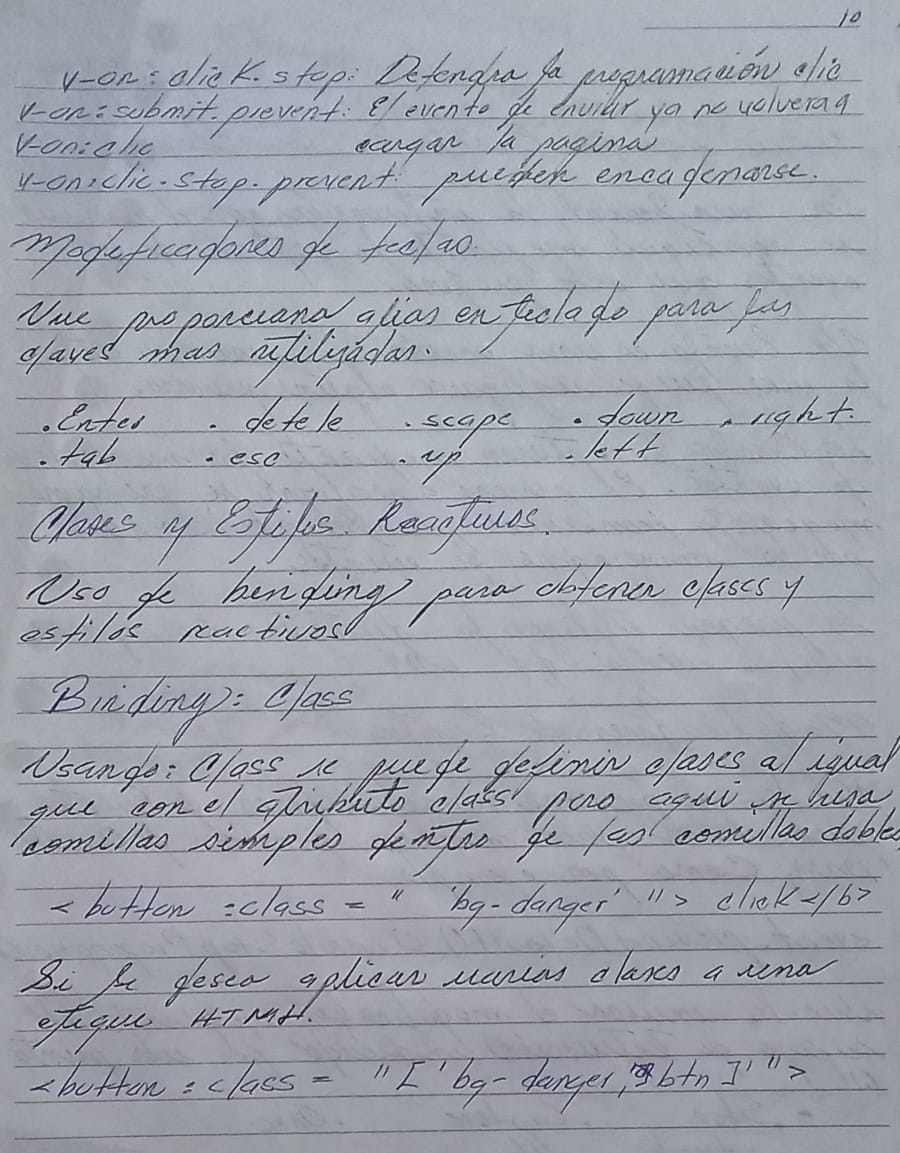 10
v-on:click.stop: Detendra la programación clic
v-on:submit.prevent: El evento de enviar ya no volvera a
v-on:clic cargar la pagina
v-on:clic.stop.prevent: pueden encadenarse.
Modificadores de teclao.
Vue proporciana alias en teclado para las
claves mas utilizadas.
.Enter .detele .scape .down .right.
.tab .esc .up .left
Clases y Estilos Reactivos.
Uso de binding para obtener clases y
estilos reactivos
Binding: Class
Usando: Class se puede definir clases al igual
que con el atributo class pero aqui se usa
comillas simples dentro de las comillas dobles
<button :class = " 'bg-danger' "> click</b>
Si se desea aplicar varias clases a una
etique HTML.
<button :class = "['bg-danger, btn]' ">